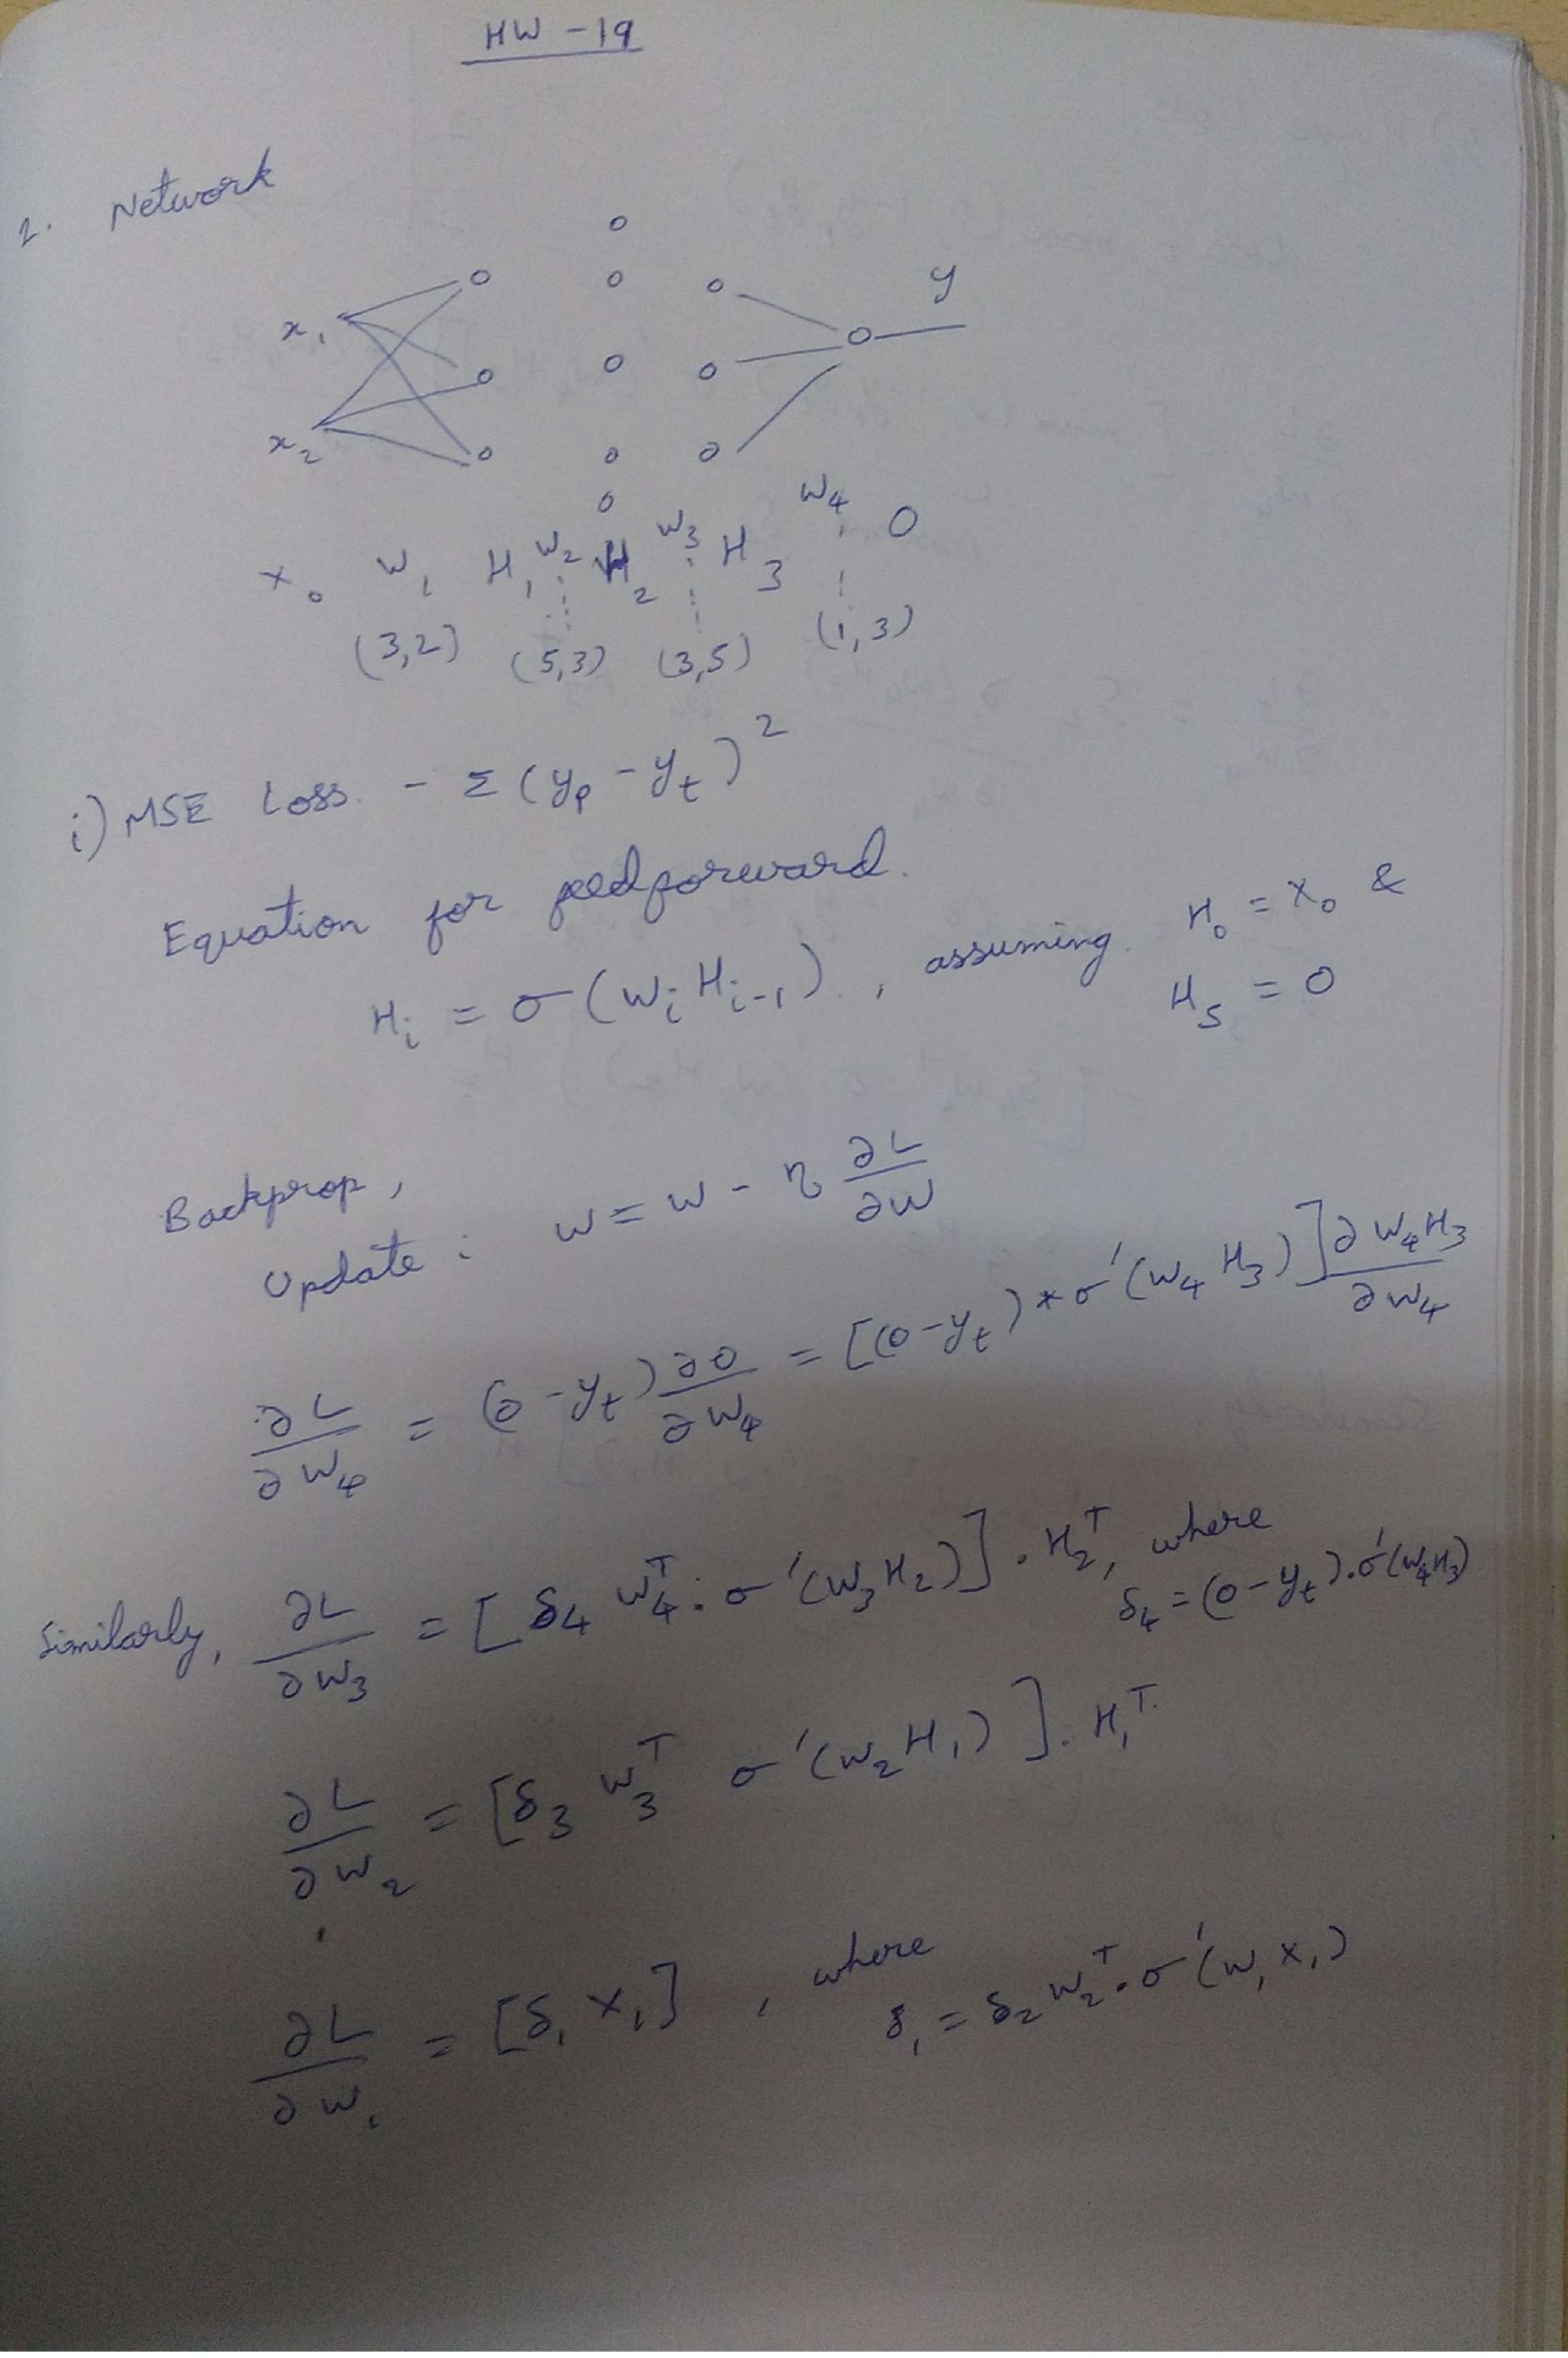 HW - 19
2. Network
y
x₁
x₂
x₀ W₁ H₁ W₂ H₂ W₃ H₃ W₄ O
(3,2) (5,3) (3,5) (1,3)
i) MSE Loss - Σ(yₚ - yₜ)²
Equation for feedforward.
Hᵢ = σ(WᵢHᵢ₋₁), assuming H₀ = X₀ &
H₅ = O
Backprop,
Update: W = W - η ∂L/∂W
∂L/∂W₄ = (O - yₜ) ∂O/∂W₄ = [(O - yₜ) * σ'(W₄ H₃)] ∂W₄H₃/∂W₄
Similarly, ∂L/∂W₃ = [δ₄ W₄ᵀ · σ'(W₃H₂)] · H₂ᵀ, where
δ₄ = (O - yₜ) · σ'(W₄H₃)
∂L/∂W₂ = [δ₃ W₃ᵀ σ'(W₂H₁)] · H₁ᵀ
∂L/∂W₁ = [δ₁ X₁], where
δ₁ = δ₂ W₂ᵀ · σ'(W₁X₁)